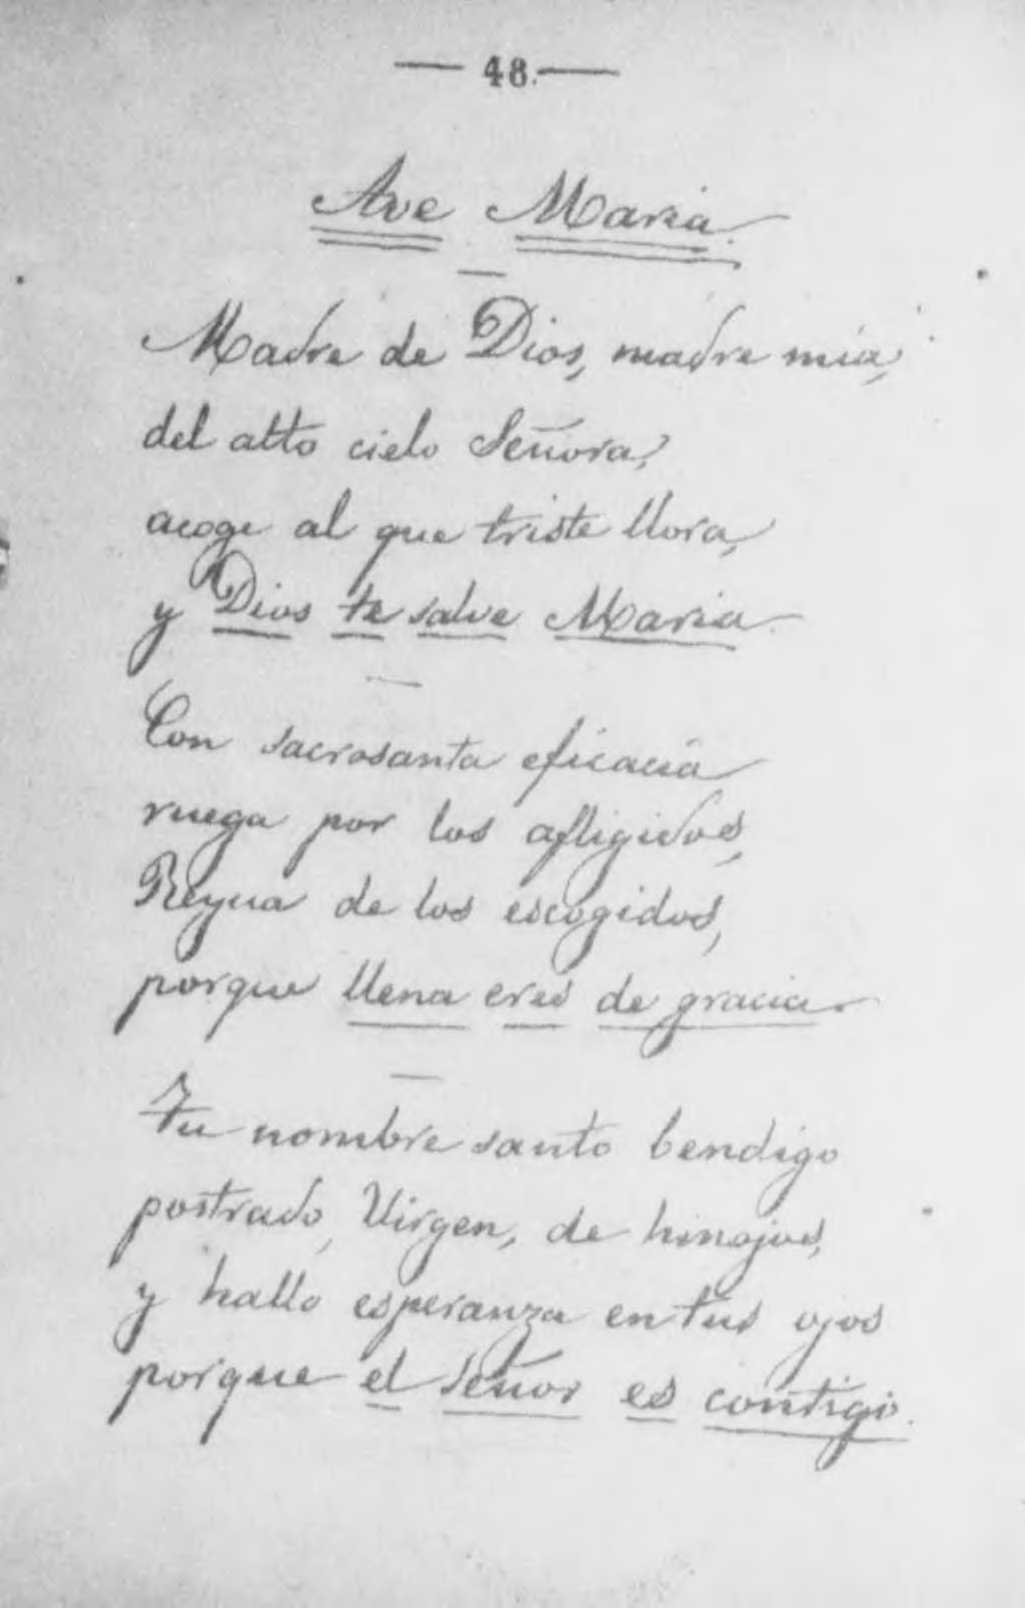 — 48. —
Ave Maria.
Madre de Dios, madre mía,
del alto cielo Señora,
acoge al que triste llora,
y Dios te salve Maria.
Con sacrosanta eficacia
ruega por los afligidos,
Reyna de los escogidos,
porque llena eres de gracia.
Tu nombre santo bendigo
postrado, Virgen, de hinojos,
y hallo esperanza en tus ojos
porque el Señor es contigo.